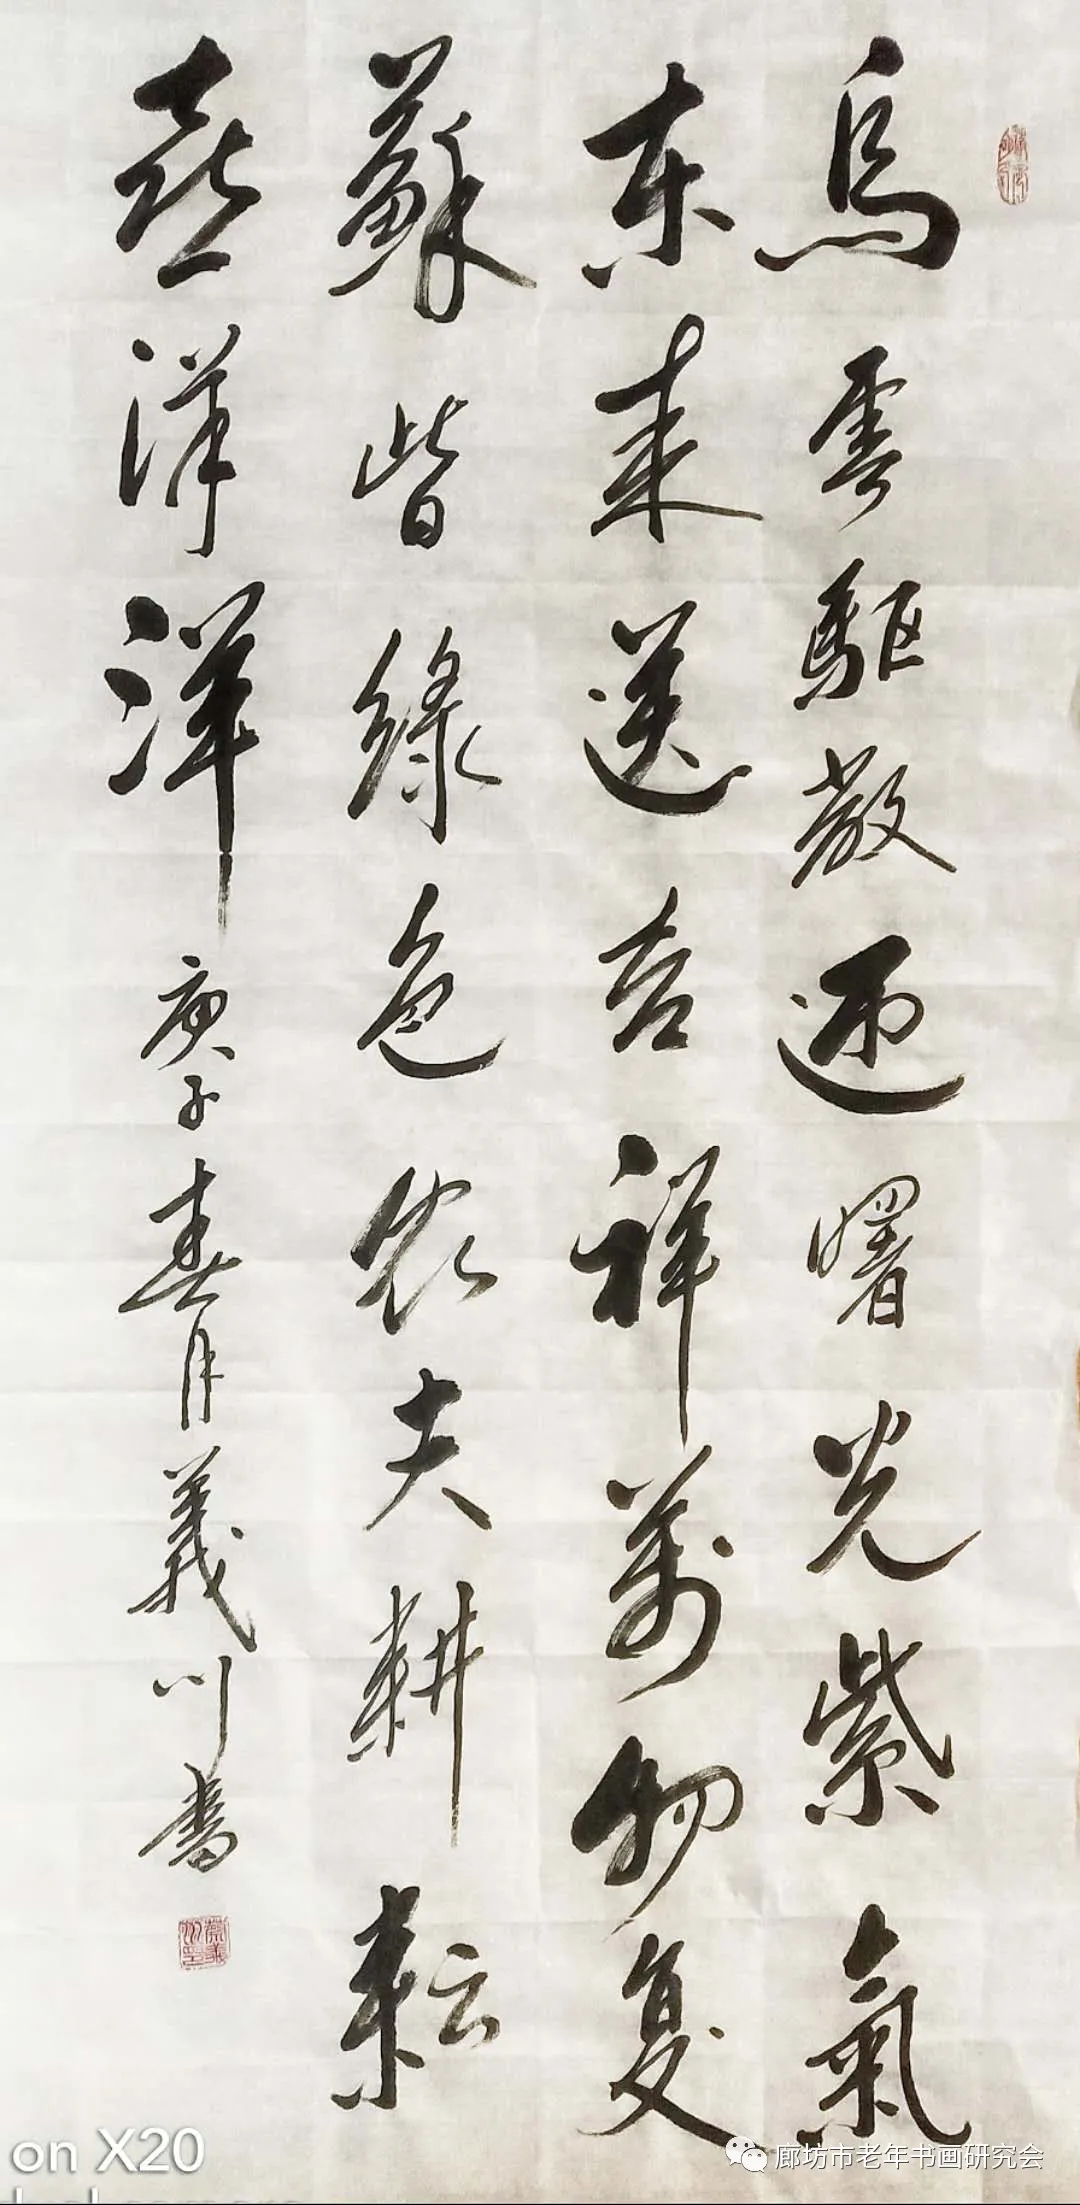 乌雲驱散迎曙光紫氣
东来送吉祥萬物复
蘇皆綠色农夫耕耘
喜洋洋
庚子春月義川書
on X20
廊坊市老年书画研究会